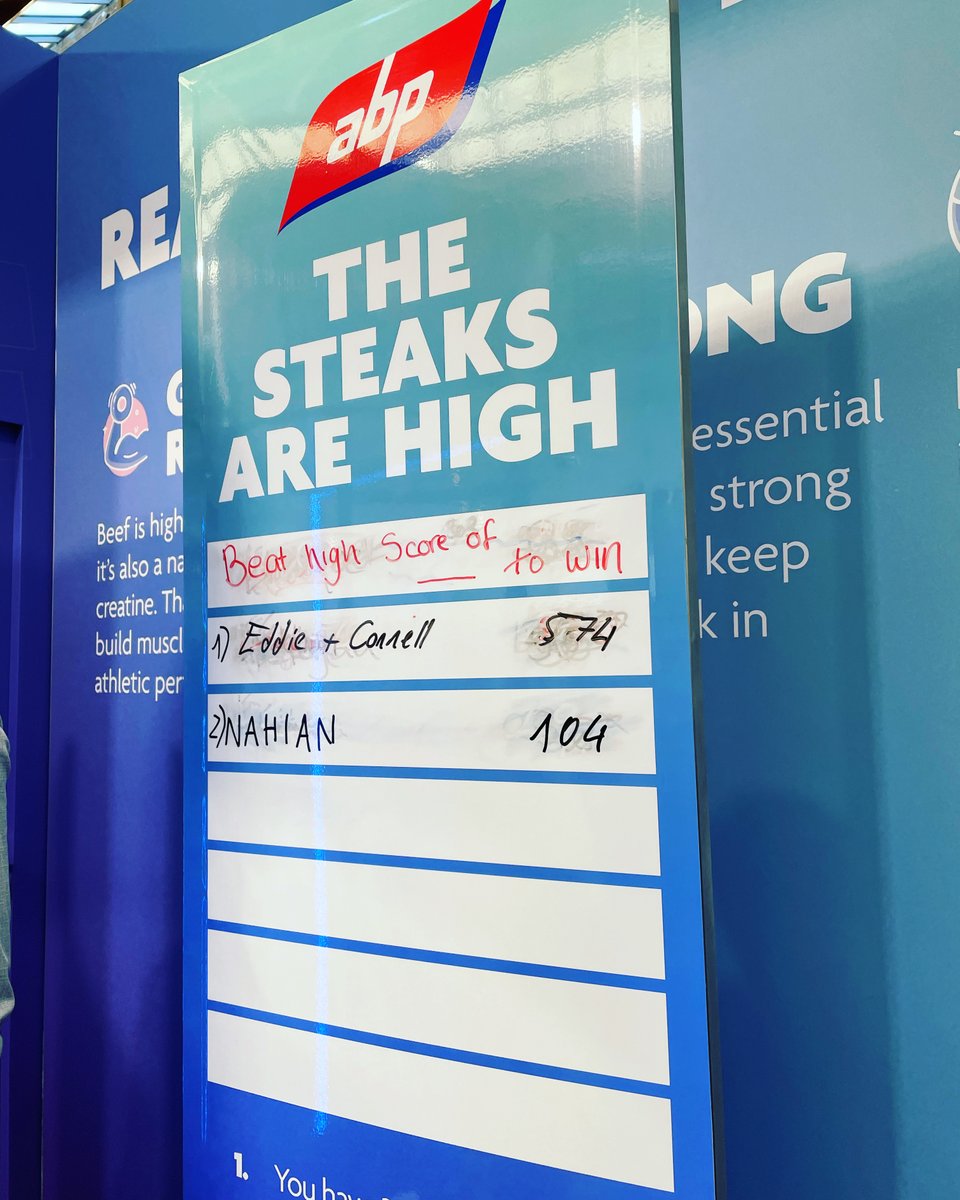 abp
THE
STEAKS
ARE HIGH
Beat high Score of ___ to win
1) Eddie + Connell 574
2) NAHIAN 104
1. You have
REA
Beef is high
it's also a na
creatine. Th
build muscl
athletic per
ONG
essential
strong
keep
k in